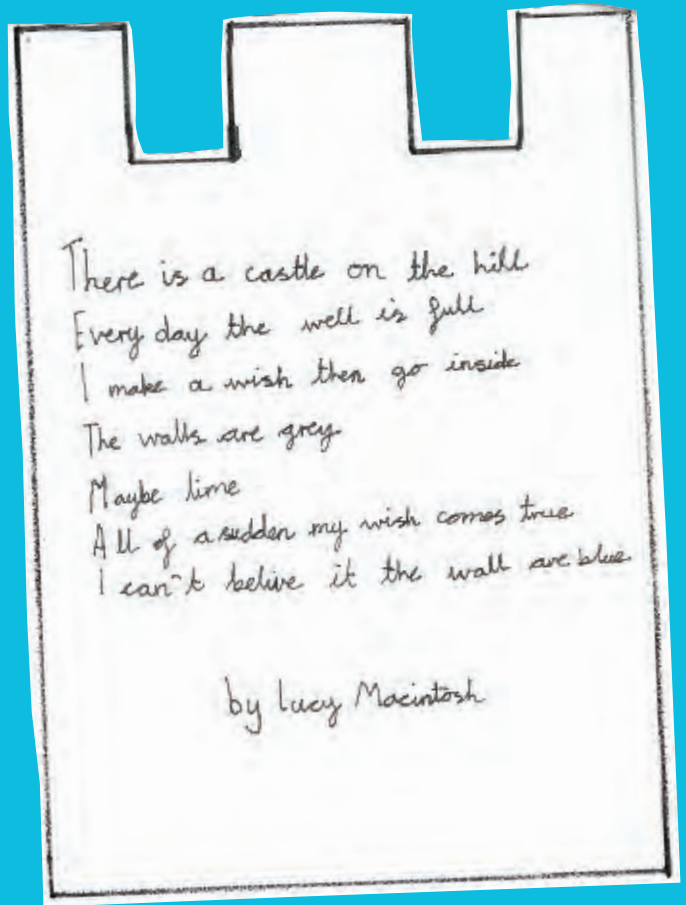 There is a castle on the hill
Every day the well is full
I make a wish then go inside
The walls are grey
Maybe lime
All of a sudden my wish comes true
I can't belive it the wall are blue
by Lucy Macintosh